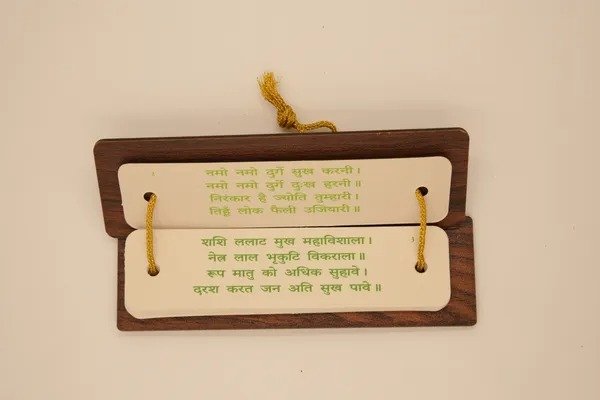 नमो नमो दुर्गे सुख करनी।
नमो नमो दुर्गे दुःख हरनी॥
निरंकार है ज्योति तुम्हारी।
तिहूँ लोक फैली उजियारी॥
शशि ललाट मुख महाविशाला।
नेत्र लाल भृकुटि विकराला॥
रूप मातु को अधिक सुहावे।
दरश करत जन अति सुख पावे॥